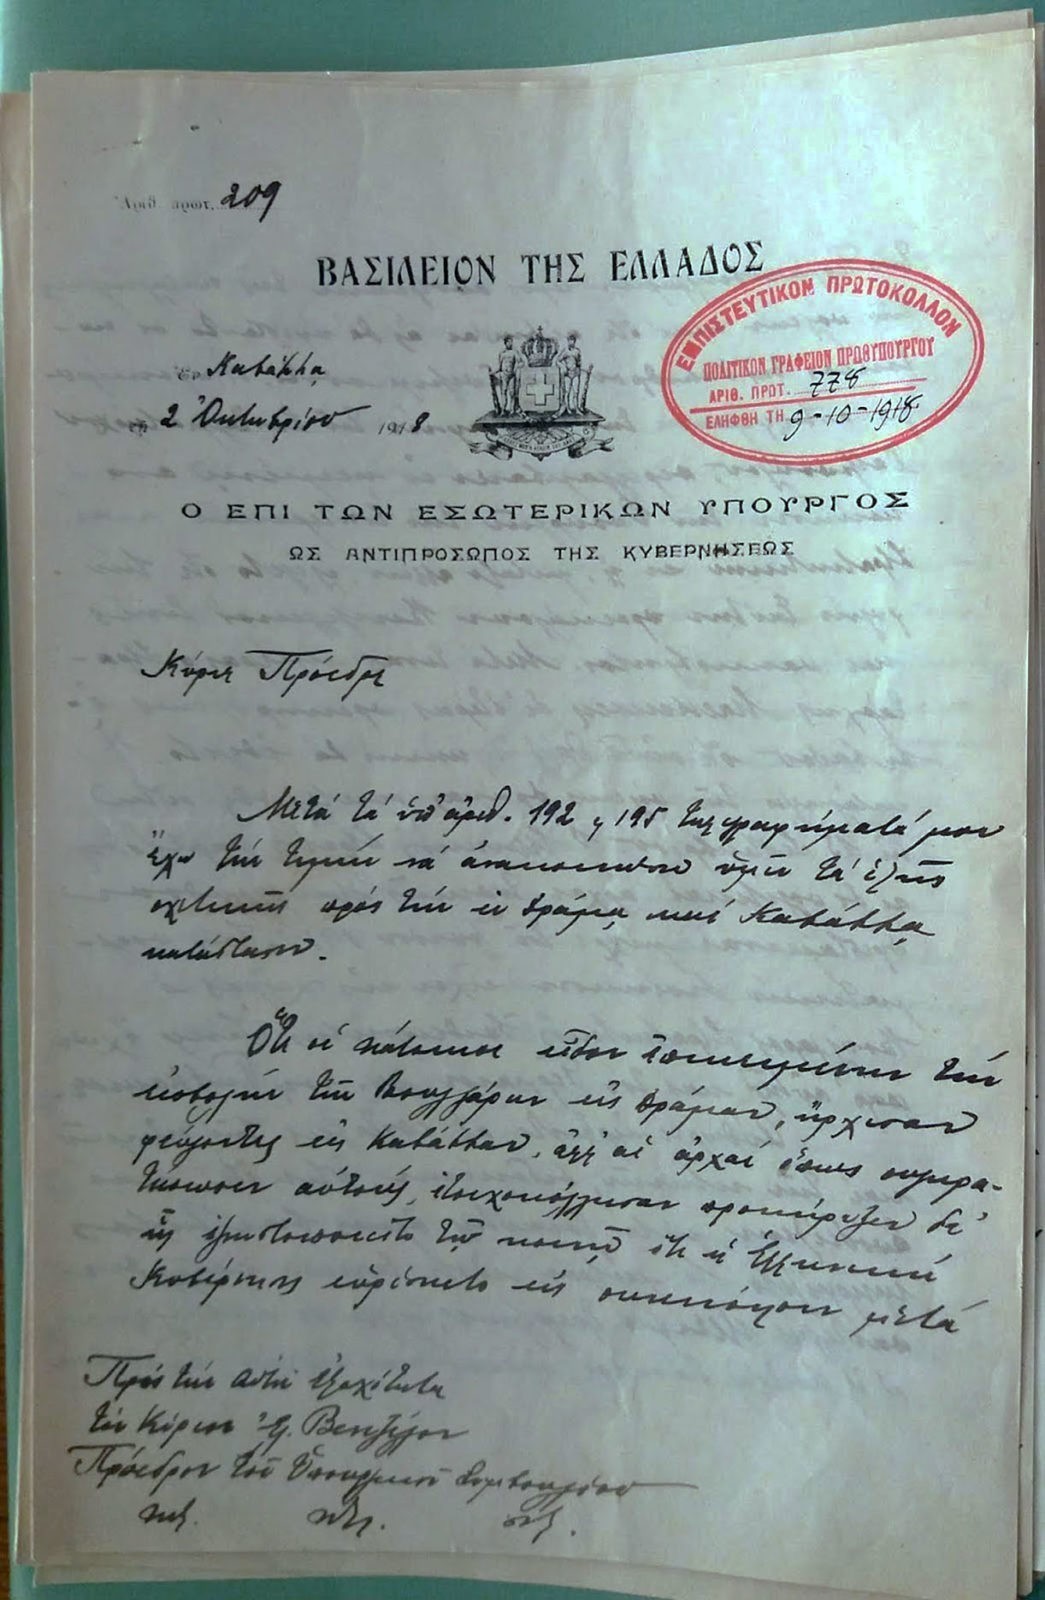 Ἀριθ. πρωτ. 209
ΒΑΣΙΛΕΙΟΝ ΤΗΣ ΕΛΛΑΔΟΣ
ΕΜΠΙΣΤΕΥΤΙΚΟΝ ΠΡΩΤΟΚΟΛΛΟΝ
ΠΟΛΙΤΙΚΟΝ ΓΡΑΦΕΙΟΝ ΠΡΩΘΥΠΟΥΡΓΟΥ
ΑΡΙΘ. ΠΡΩΤ. 778
ΕΛΗΦΘΗ ΤΗ 9-10-1918
Ἐν Καβάλλᾳ
τῇ 2 Ὀκτωβρίου 1918
Ο ΕΠΙ ΤΩΝ ΕΣΩΤΕΡΙΚΩΝ ΥΠΟΥΡΓΟΣ
ΩΣ ΑΝΤΙΠΡΟΣΩΠΟΣ ΤΗΣ ΚΥΒΕΡΝΗΣΕΩΣ
Κύριε Πρόεδρε
Μετά τά ὑπ' ἀριθ. 192 ϗ 195 τηλεγραφήματά μου
ἔχω τήν τιμήν νά ἀνακοινώσω ὑμῖν τά ἑξῆς
σχετικῶς πρός τήν ἐν Δράμᾳ καί Καβάλλᾳ
κατάστασιν.
Ὅτε οἱ κάτοικοι εἶδον ἐπικειμένην τήν
εἰσβολήν τῶν Βουλγάρων εἰς Δράμαν, ἤρχισαν
φεύγοντες εἰς Καβάλλαν, ἀλλ' αἱ ἀρχαί ὅπως συγκρα-
τήσωσιν αὐτούς, ἐτοιχοκόλλησαν προκήρυξιν δι'
ἧς ἐγνωστοποιεῖτο τῷ κοινῷ ὅτι ἡ Ἑλληνική
Κυβέρνησις εὑρίσκετο εἰς συνεννόησιν μετά
Πρός τήν Αὐτοῦ Ἐξοχότητα
τόν Κύριον Ἐλ. Βενιζέλον
Πρόεδρον τοῦ Ὑπουργικοῦ Συμβουλίου
κτλ. κτλ. κτλ.